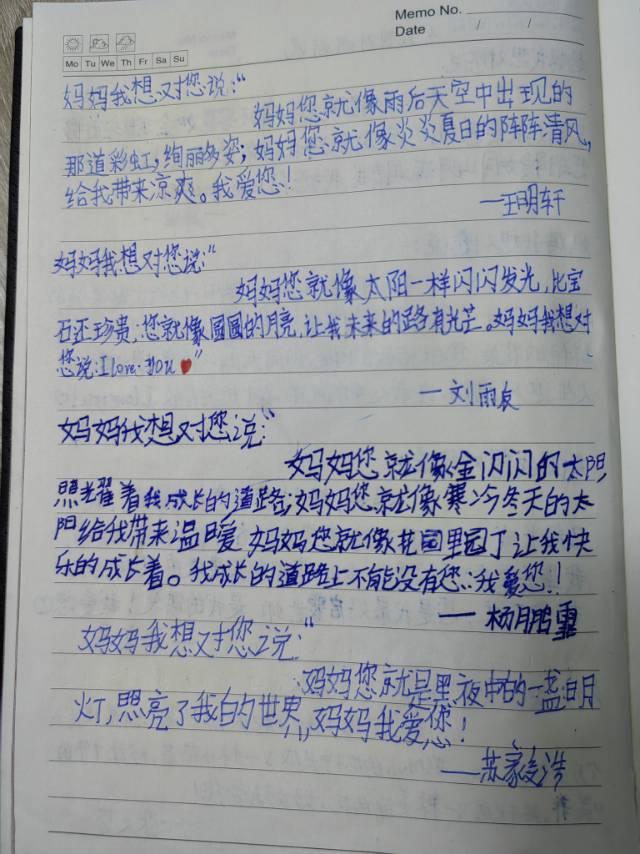 Memo No.
Date / /
Mo Tu We Th Fr Sa Su
妈妈我想对您说:“
妈妈您就像雨后天空中出现的
那道彩虹,绚丽多姿;妈妈您就像炎炎夏日的阵阵清风,
给我带来凉爽。我爱您!
—王明轩
妈妈我想对您说:“
妈妈您就像太阳一样闪闪发光,比宝
石还珍贵;您就像圆圆的月亮,让我未来的路有光芒。妈妈我想对
您说:I love you ❤”
—刘雨辰
妈妈我想对您说:“
妈妈您就像金闪闪的太阳
照耀着我成长的道路;妈妈您就像寒冷冬天的太
阳给我带来温暖,妈妈您就像花园里园丁让我快
乐的成长着。我成长的道路上不能没有您:我爱您!
—杨鹏霏
妈妈我想对您说:“
妈妈您就是黑夜中的一盏明
灯,照亮了我的世界,妈妈我爱您!
—苏家浩